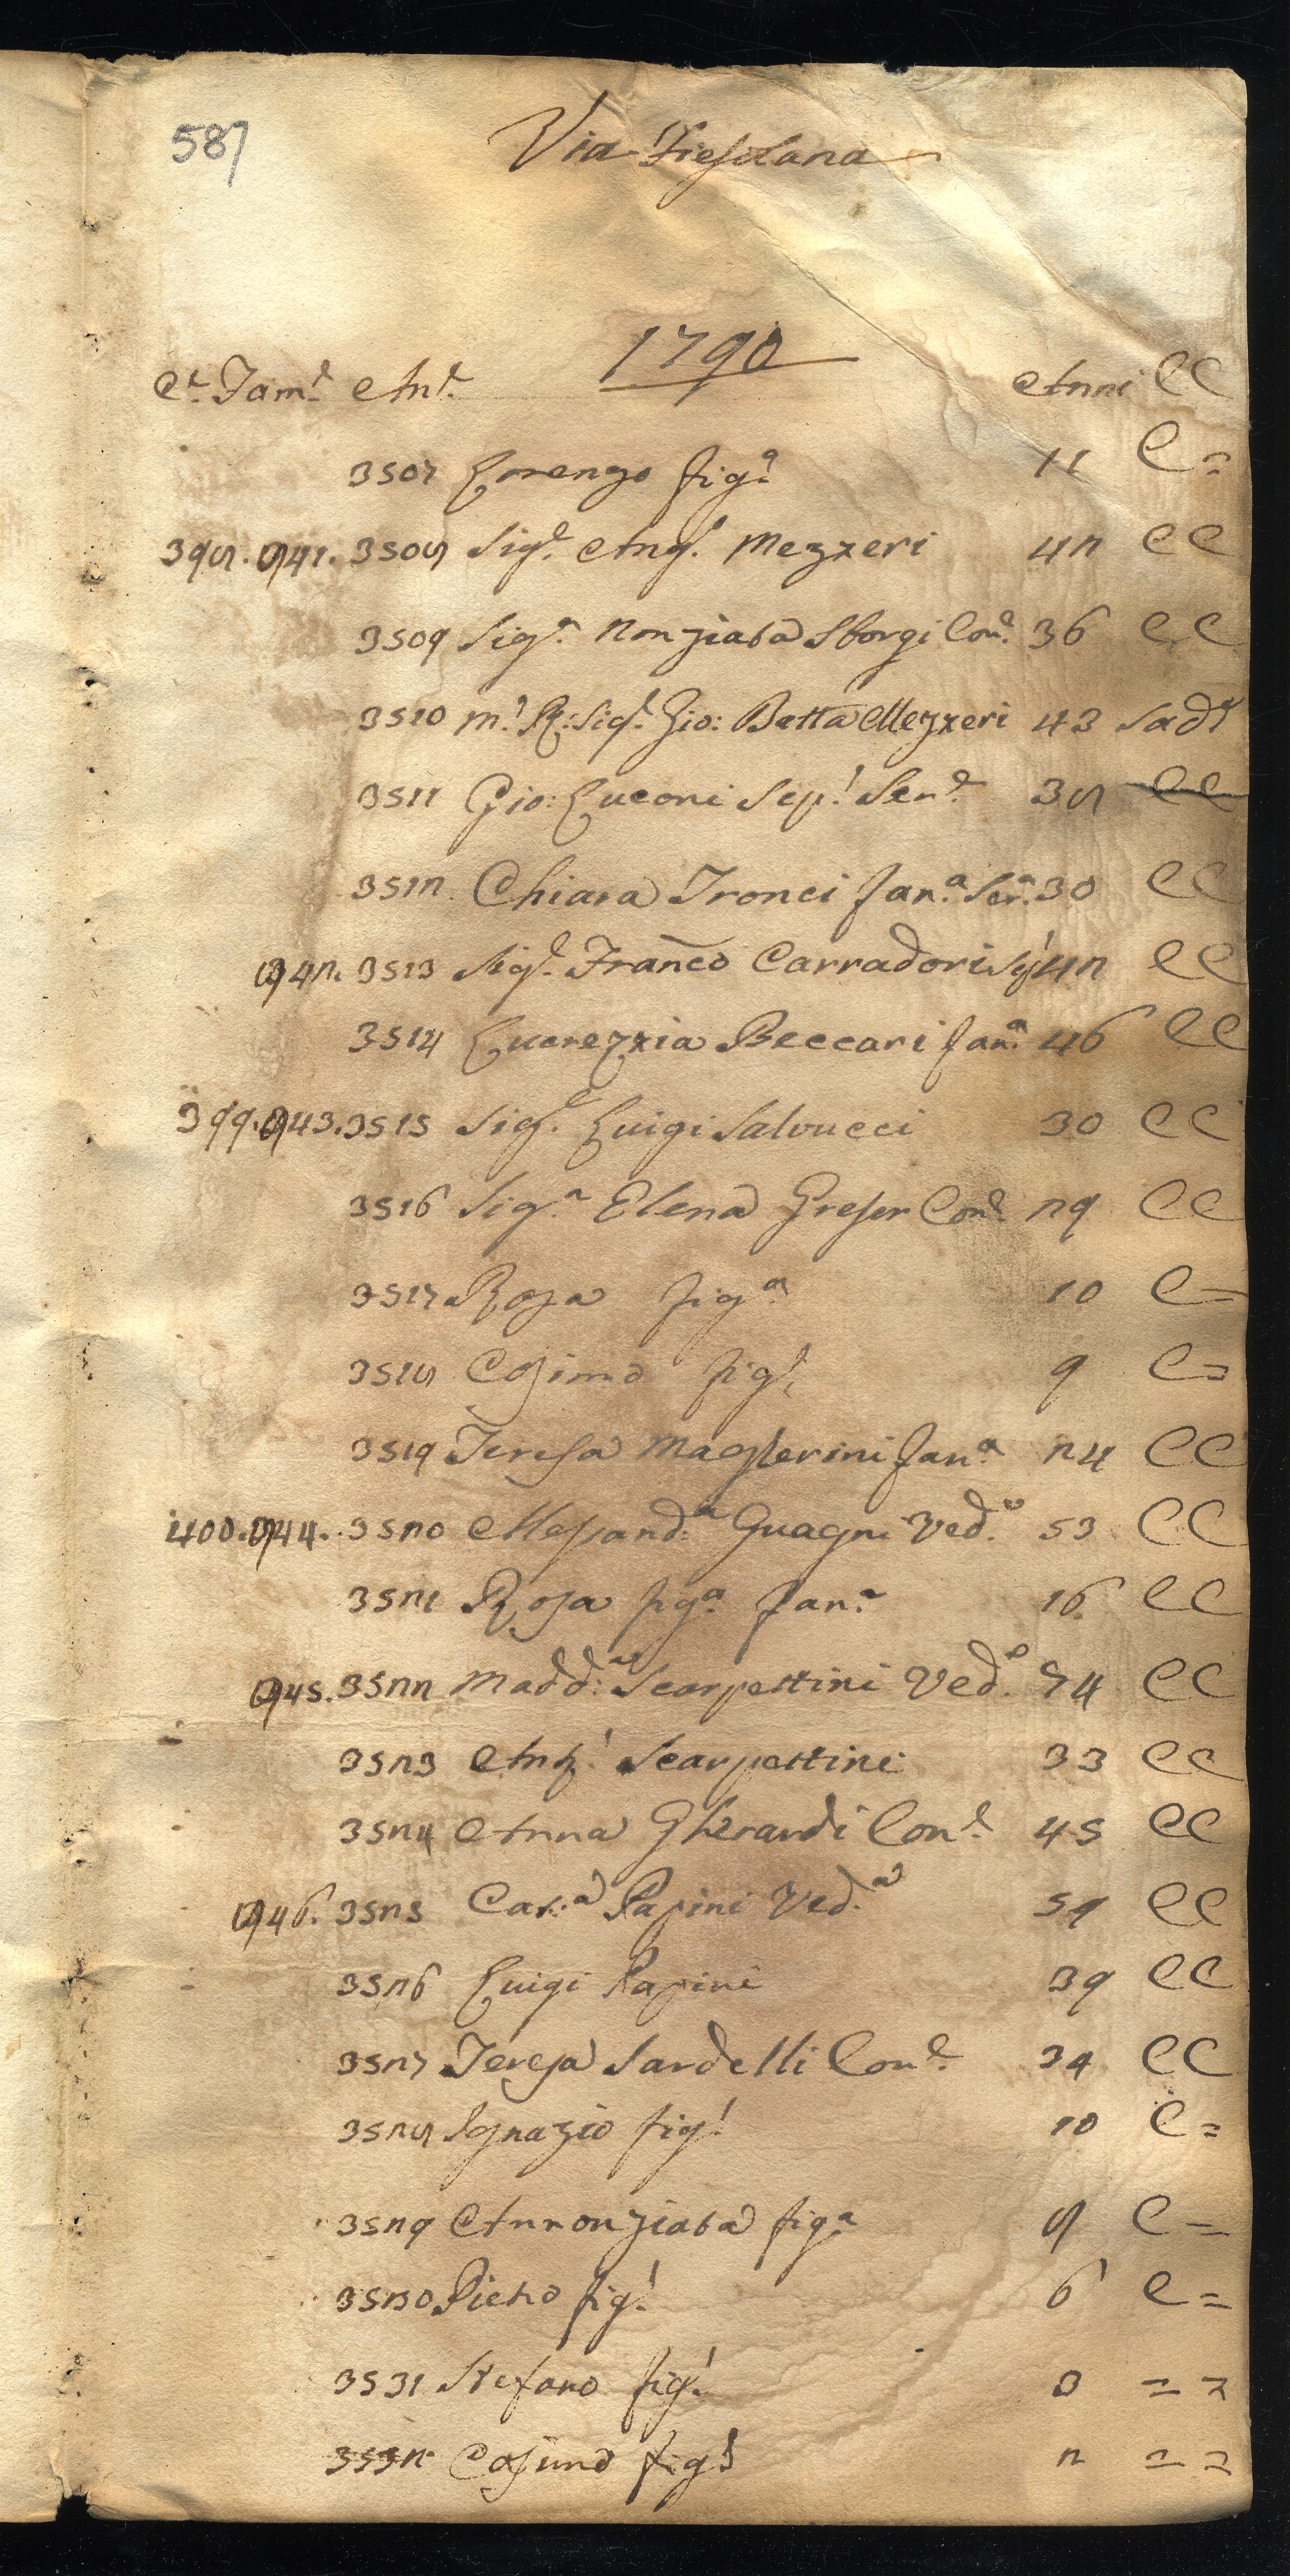 587
Via Fiesolana
1790
Ce. Fame. Ane. Anni CC
3507 Lorenzo figo. 11 C =
398. 941. 3508 Sige. Angl. Mezzeri 42 CC
3509 Siga. Nonziata Sborgi Cone. 36 CC
3510 Ml. R: Sigl. Gio: Batta Mezzeri 43 Sade
3511 Gio: Luconi Sepl. Sere. 38 CC
3512 Chiara Tronci fana. Sera. 30 CC
942. 3513 Sigl. Franco Carradori Sl 42 CC
3514 Lucrezzia Beccari fana. 46 CC
399. 943. 3515 Sigl. Luigi Salvucci 30 CC
3516 Siga. Elena Greser Cone. 29 CC
3517 Rosa figa. 10 C =
3518 Cosimo figl. 9 C =
3519 Teresa Magherini fana. 24 CC
400. 944. 3520 Alessanda. Guagni Veda. 53 CC
3521 Rosa figa. fana. 16 CC
945. 3522 Madda: Scarpettini Veda. 74 CC
3523 Angl. Scarpettini 33 CC
3524 Anna Gherardi Cone. 45 CC
946. 3525 Cata: Papini Veda. 59 CC
3526 Luigi Papini 39 CC
3527 Teresa Sardelli Cone. 34 CC
3528 Ignazio figl. 10 C =
3529 Annonziata figa. 8 C =
3530 Pietro figl. 6 C =
3531 Stefano figl. 3 = =
3532 Cosimo figl. 2 = =